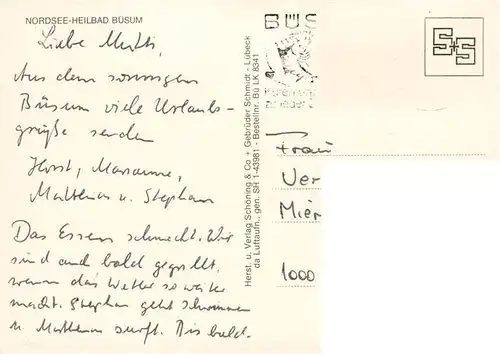 NORDSEE-HEILBAD BÜSUM
Liebe Mutti,
Aus dem sonnigen
Büsum viele Urlaubs-
grüße senden
Horst, Marianne,
Matthias u. Stephan
Das Essen schmeckt. Wir
sind auch bald gegrillt,
wenn das Wetter so weiter
macht. Stephan geht schwimmen
u. Matthias surft. Bis bald.
Herst. u. Verlag Schöning & Co + Gebrüder Schmidt - Lübeck
da Luftaufn., gen. SH 1-43981 - Bestellnr. Bü LK 8341
BÜS
zu jeder
S+S
Frau
Ver
Mier
1000